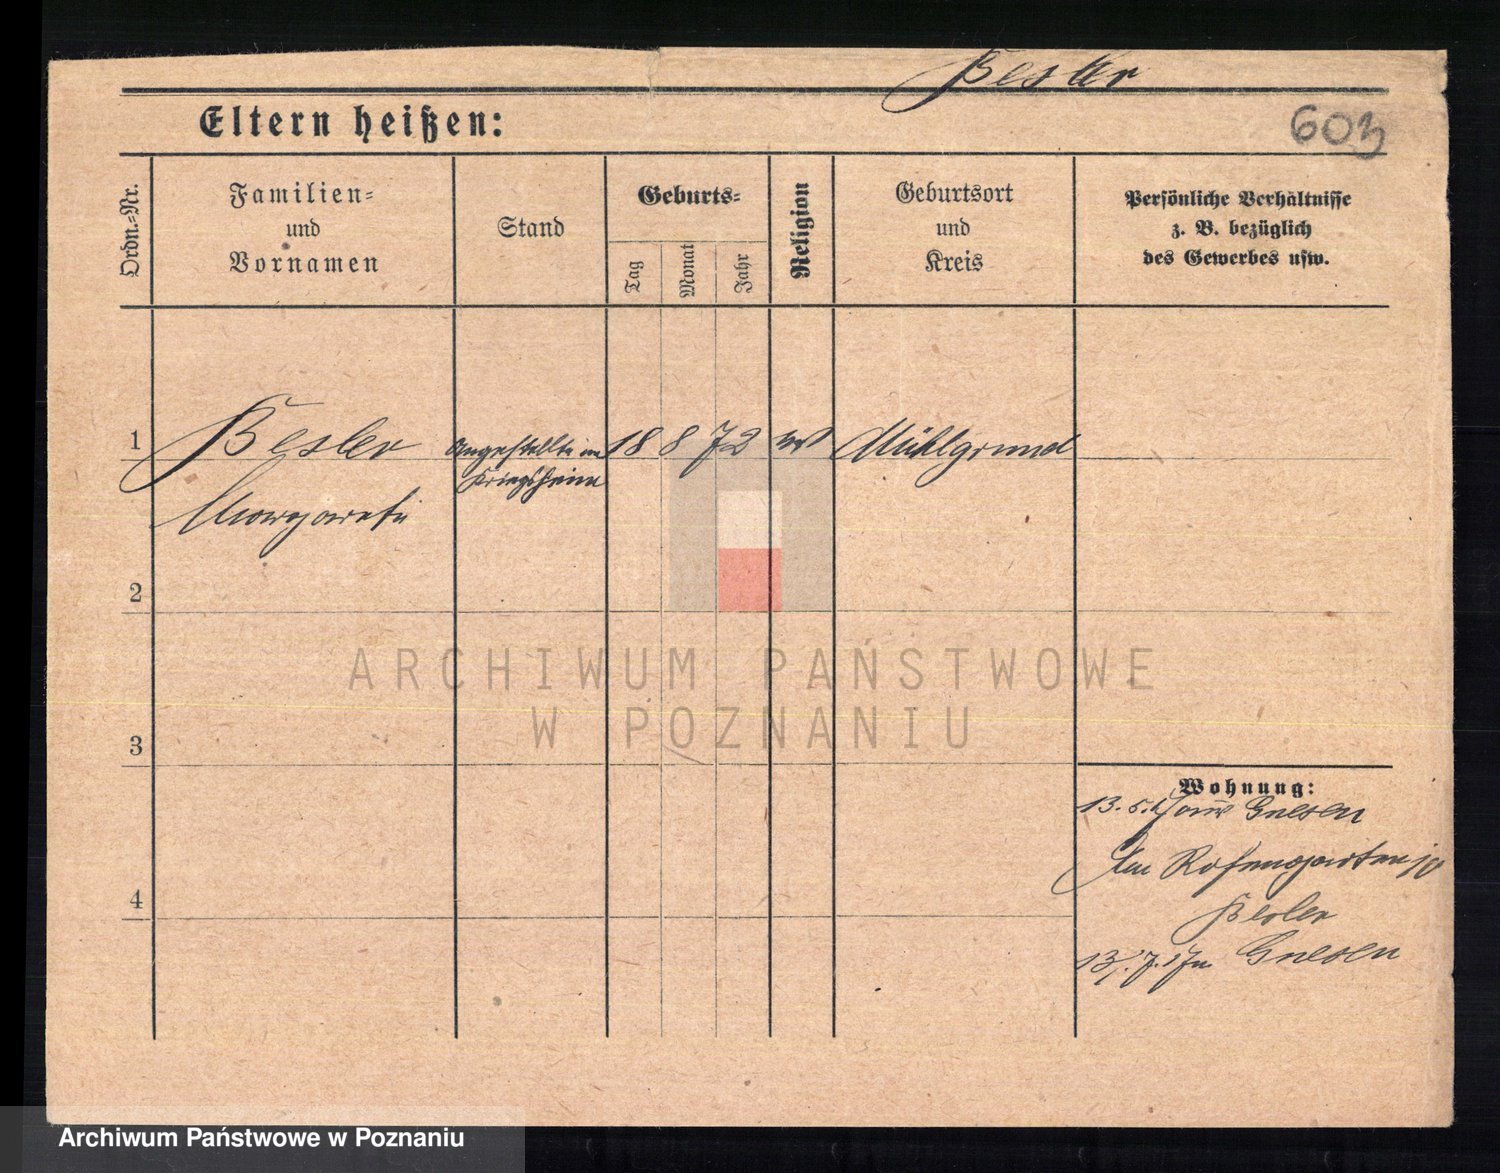 Besler
Eltern heißen:
603
Ordn.=Nr.
Familien=
und
Vornamen
Stand
Geburts=
Tag
Monat
Jahr
Religion
Geburtsort
und
Kreis
Persönliche Verhältnisse
z. B. bezüglich
des Gewerbes usw.
1
Besler
Margarete
Angestellte im
Kriegsheim
18 8 72
Mühlgrund
2
ARCHIWUM PAŃSTWOWE
W POZNANIU
3
Wohnung:
13. 5. Gnesen
Am Rosengarten
Besler
4
13. 7. 17 Gnesen
Archiwum Państwowe w Poznaniu